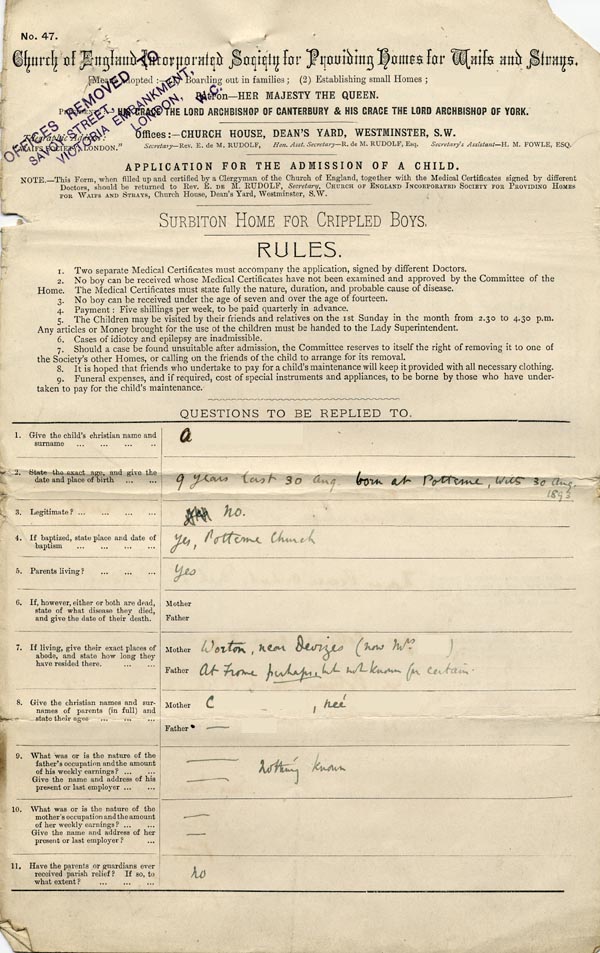 No. 47.
Church of England Incorporated Society for Providing Homes for Waifs and Strays.
Means adopted :—(1) Boarding out in families ; (2) Establishing small Homes ;
OFFICES REMOVED TO
SAVOY STREET,
VICTORIA EMBANKMENT,
LONDON, W.C.
Patron—HER MAJESTY THE QUEEN.
HIS GRACE THE LORD ARCHBISHOP OF CANTERBURY & HIS GRACE THE LORD ARCHBISHOP OF YORK.
Offices:—CHURCH HOUSE, DEAN'S YARD, WESTMINSTER, S.W.
LONDON."
Secretary—Rev. E. de M. RUDOLF, Hon. Asst. Secretary—R. de M. RUDOLF, Esq. Secretary's Assistant—H. M. FOWLE, ESQ.
APPLICATION FOR THE ADMISSION OF A CHILD.
NOTE.—This Form, when filled up and certified by a Clergyman of the Church of England, together with the Medical Certificates signed by different
Doctors, should be returned to Rev. E. DE M. RUDOLF, Secretary, CHURCH OF ENGLAND INCORPORATED SOCIETY FOR PROVIDING HOMES
FOR WAIFS AND STRAYS, Church House, Dean's Yard, Westminster, S.W.
SURBITON HOME FOR CRIPPLED BOYS.
RULES.
1. Two separate Medical Certificates must accompany the application, signed by different Doctors.
2. No boy can be received whose Medical Certificates have not been examined and approved by the Committee of the
Home. The Medical Certificates must state fully the nature, duration, and probable cause of disease.
3. No boy can be received under the age of seven and over the age of fourteen.
4. Payment : Five shillings per week, to be paid quarterly in advance.
5. The Children may be visited by their friends and relatives on the 1st Sunday in the month from 2.30 to 4.30 p.m.
Any articles or Money brought for the use of the children must be handed to the Lady Superintendent.
6. Cases of idiotcy and epilepsy are inadmissible.
7. Should a case be found unsuitable after admission, the Committee reserves to itself the right of removing it to one of
the Society's other Homes, or calling on the friends of the child to arrange for its removal.
8. It is hoped that friends who undertake to pay for a child's maintenance will keep it provided with all necessary clothing.
9. Funeral expenses, and if required, cost of special instruments and appliances, to be borne by those who have under-
taken to pay for the child's maintenance.
QUESTIONS TO BE REPLIED TO.
1. Give the child's christian name and
surname ... ... ... ... A
2. State the exact age, and give the
date and place of birth ... ... ... 9 years last 30 Aug. born at Potterne, Wilts 30 Aug.
1893
3. Legitimate? ... ... ... ... No.
4. If baptized, state place and date of
baptism ... ... ... ... Yes, Potterne Church
5. Parents living? ... ... ... Yes
6. If, however, either or both are dead,
state of what disease they died,
and give the date of their death.
Mother
Father
7. If living, give their exact places of
abode, and state how long they
have resided there. ... ... ...
Mother Worton, near Devizes (now Mrs )
Father At Frome perhaps, but not known for certain.
8. Give the christian names and sur-
names of parents (in full) and
state their ages ... ... ...
Mother C , neé
Father —
9. What was or is the nature of the
father's occupation and the amount
of his weekly earnings? ... ...
Give the name and address of his
present or last employer ... ...
— nothing known
—
10. What was or is the nature of the
mother's occupation and the amount
of her weekly earnings? ... ...
Give the name and address of her
present or last employer? ...
—
—
11. Have the parents or guardians ever
received parish relief? If so, to
what extent? ... ... ... no